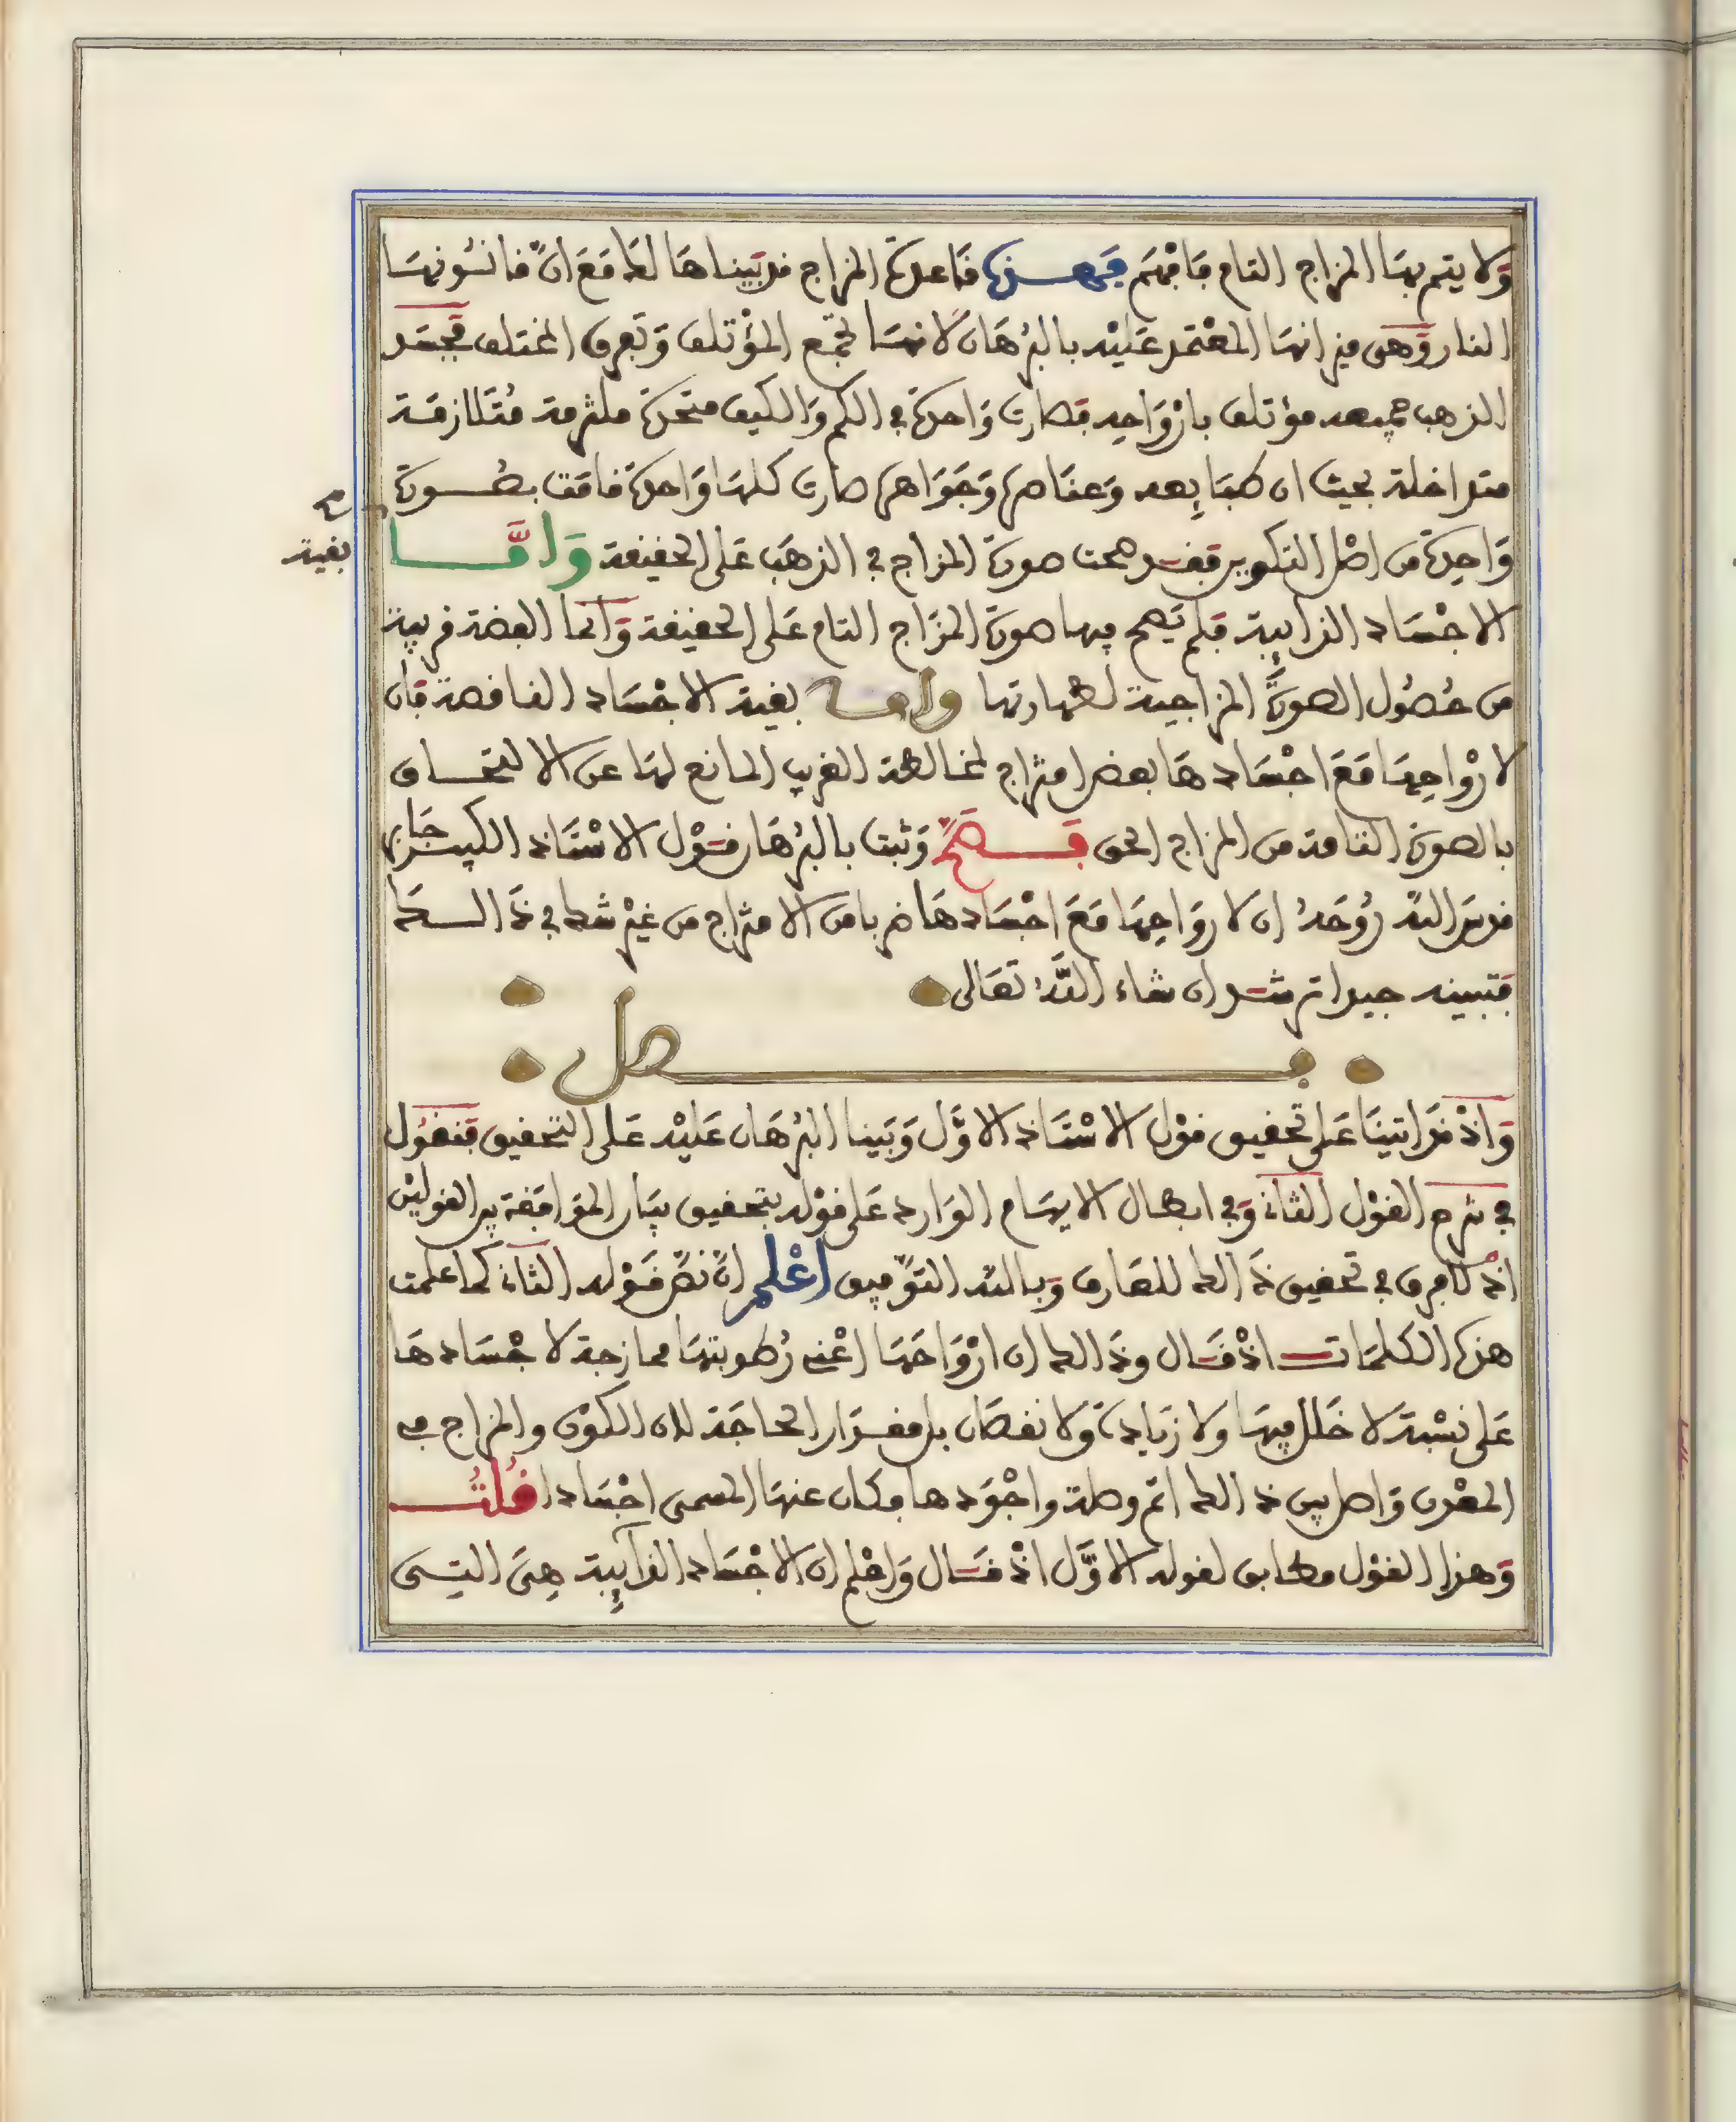 ولا يتم بها المزاج التام فافهم فهذه قاعدة المزاج قد بيناها لك مع ان قانونها
النار وهي ميزانها المعتمد عليه بالبرهان لانها تجمع المؤتلف وتفرق المختلف فجسد
الذهب جميعه مؤتلف بارواحه فصارت واحدة في الكم والكيف متحدة ملتزمة متلازمة
متداخلة بحيث ان طبايعه وعناصره وجواهره صارت كلها واحدة قامت بصورة
واحدة من اصل التكوين فقد صحت صورة المزاج في الذهب على الحقيقة واما
بقية
الاجساد الذائبة فلم يصح فيها صورة المزاج التام على الحقيقة وانما الفضة قريبة
من حصول الصورة المزاجية لطهارتها واما بقية الاجساد الناقصة فان
لارواحها مع اجسادها بعض امتزاج لمخالطة الغريب المانع لها عن الالتحاق
بالصورة التامة من المزاج الحق فصح وثبت بالبرهان قول الاستاذ الكبير جابر
قدس الله روحه ان لارواحها مع اجسادها ضربا من الامتزاج من غير شك في ذالك
فتبينه جيدا ترشد ان شاء الله تعالى
فصل
واذ قد اتينا على تحقيق قول الاستاذ الاول وبينا البرهان عليه على التحقيق فنقول
في شرح القول الثاني وفي ابطال الايهام الوارد على قوله بتحقيق بيان الموافقة بين القولين
اذ لا فرق في تحقيق ذالك للعارف وبالله التوفيق اعلم ان نص قوله الثاني كما علمت
هذه الكلمات اذ قال وذالك ان ارواحها اعني رطوبتها ممازجة لاجسادها
على نسبة لا خلل فيها ولا زيادة ولا نقصان بل مقدار الحاجة لان الكون والمزاج في
المعدن واصل بين ذالك اتم وصلة واجودها فكان عنها المسمى اجسادا قلت
وهذا القول مطابق لقوله الاول اذ قال واعلم ان الاجساد الذائبة هي التي